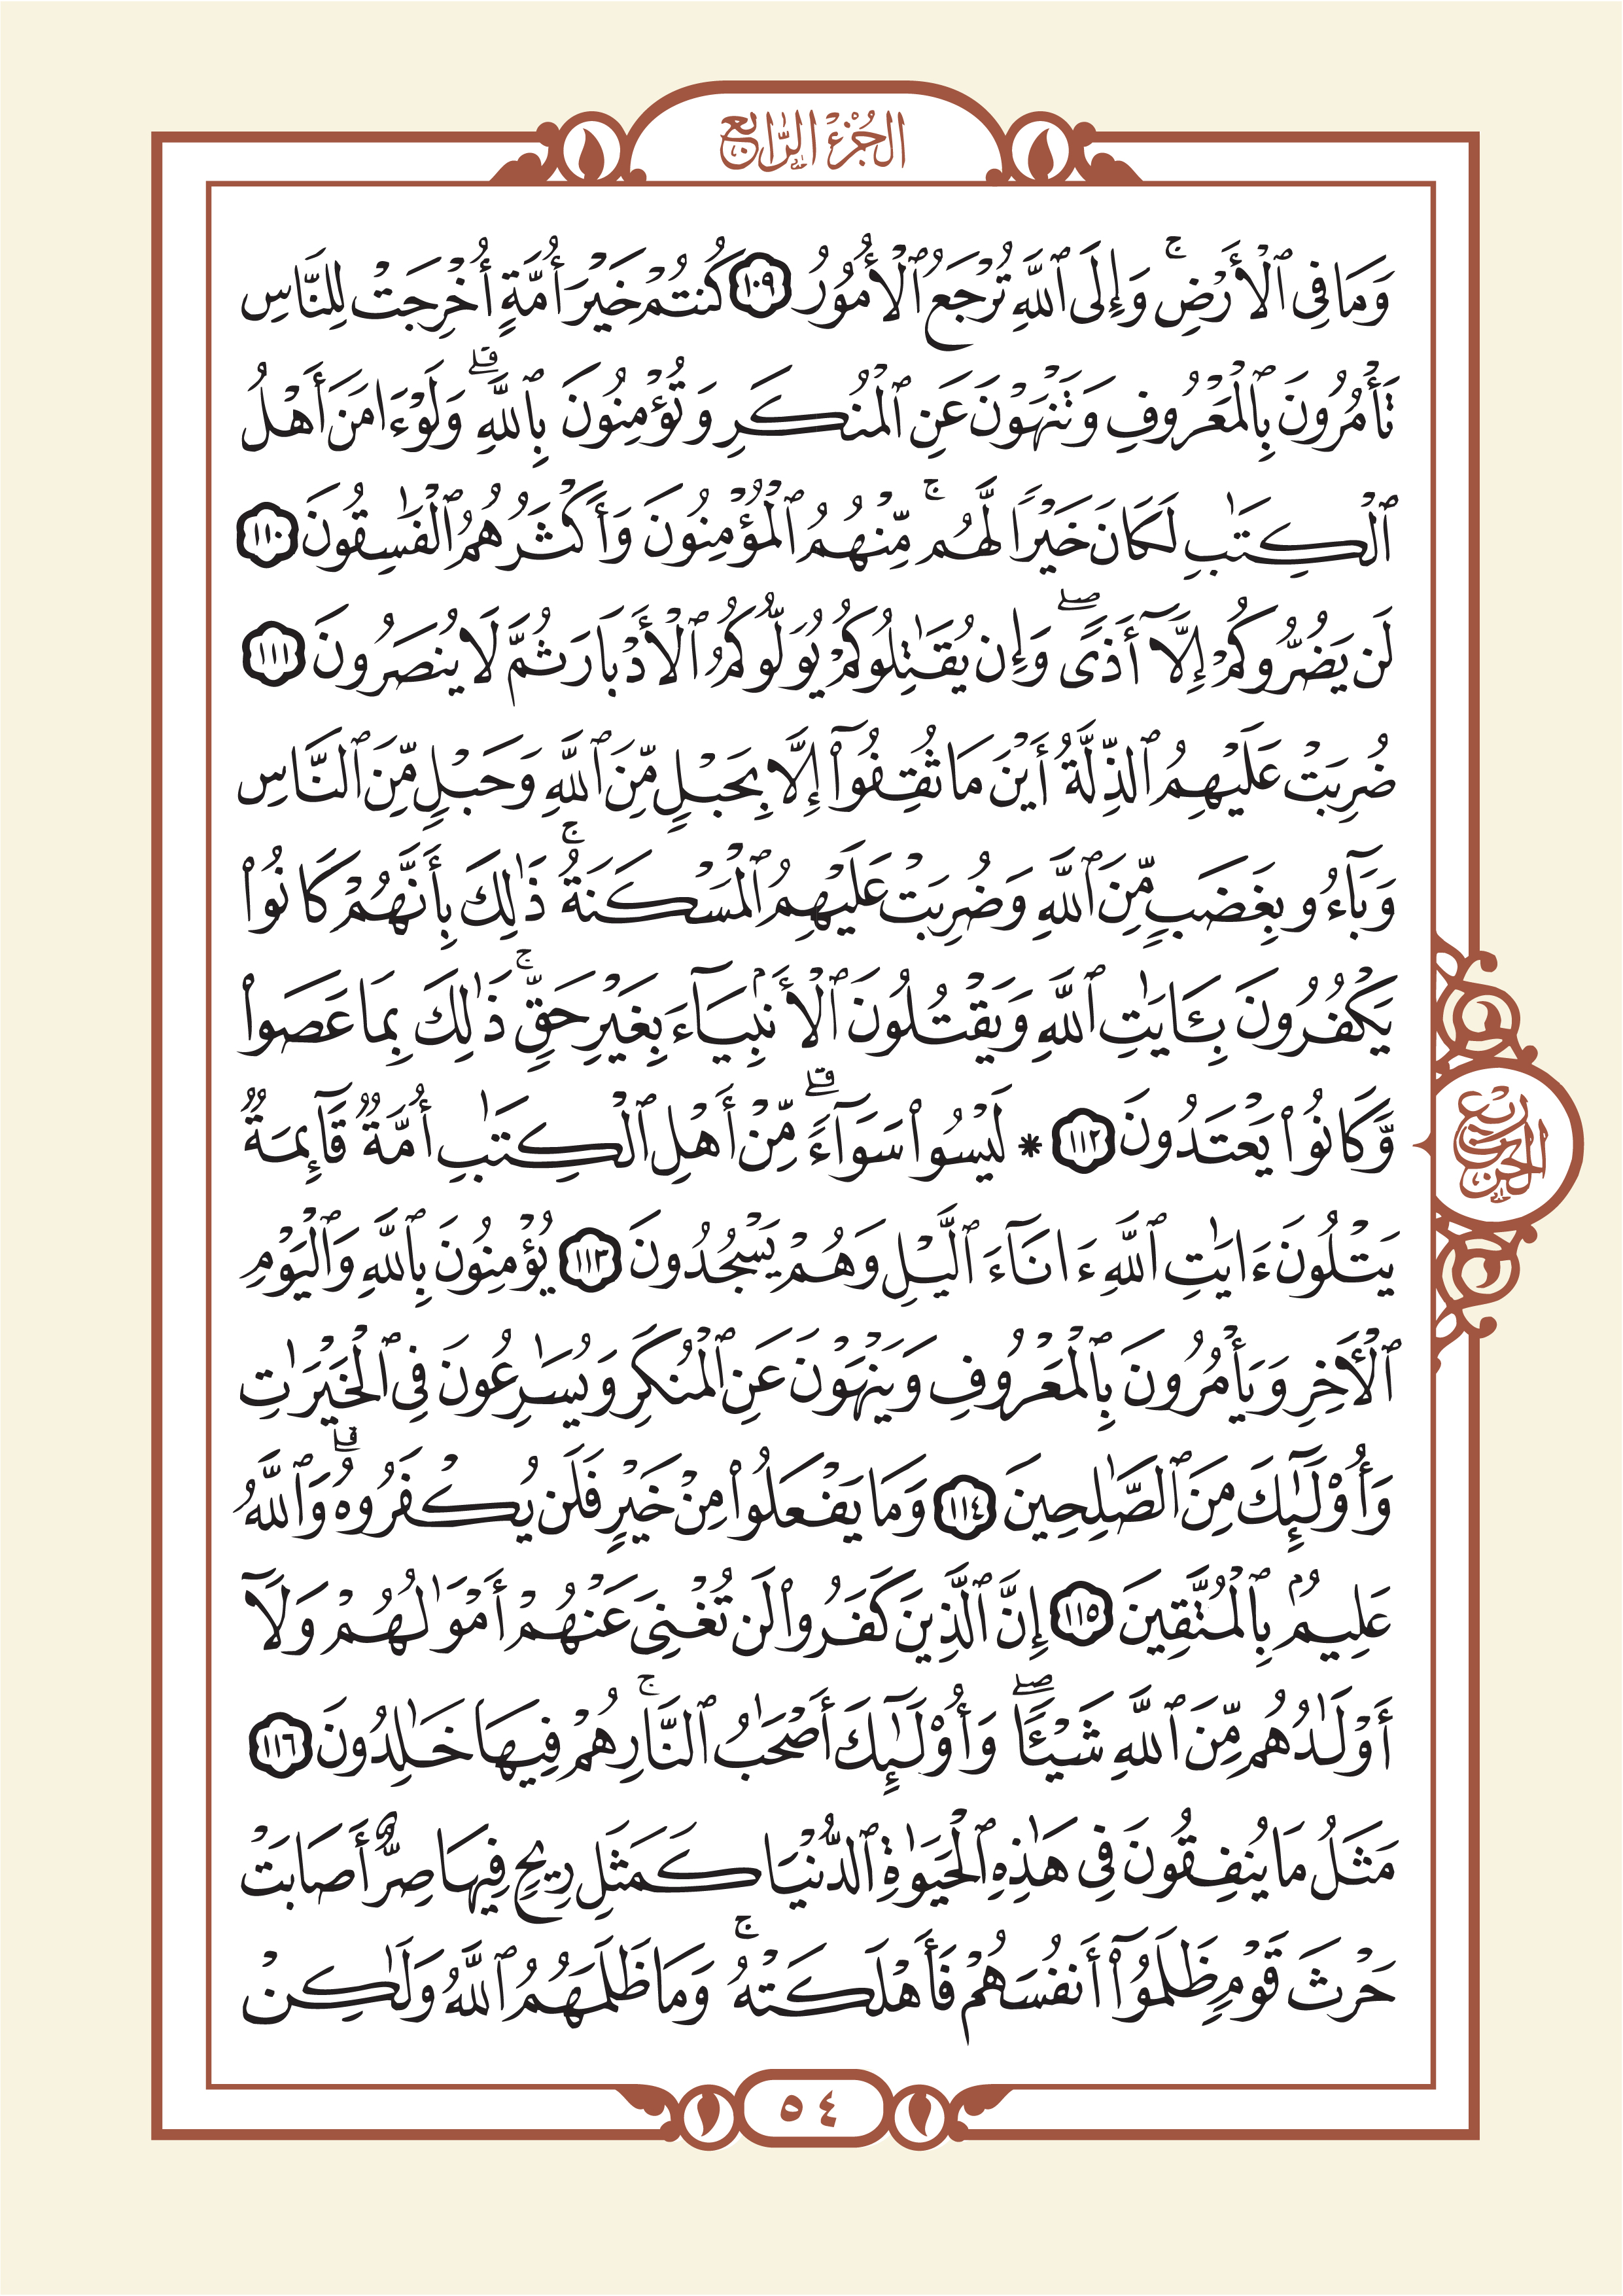 الجُزْءُ الرَّابِعُ
وَمَا فِى ٱلْأَرْضِ ۚ وَإِلَى ٱللَّهِ تُرْجَعُ ٱلْأُمُورُ ١٠٩ كُنتُمْ خَيْرَ أُمَّةٍ أُخْرِجَتْ لِلنَّاسِ
تَأْمُرُونَ بِٱلْمَعْرُوفِ وَتَنْهَوْنَ عَنِ ٱلْمُنكَرِ وَتُؤْمِنُونَ بِٱللَّهِ ۗ وَلَوْ ءَامَنَ أَهْلُ
ٱلْكِتَٰبِ لَكَانَ خَيْرًا لَّهُم ۚ مِّنْهُمُ ٱلْمُؤْمِنُونَ وَأَكْثَرُهُمُ ٱلْفَٰسِقُونَ ١١٠
لَن يَضُرُّوكُمْ إِلَّآ أَذًى ۖ وَإِن يُقَٰتِلُوكُمْ يُوَلُّوكُمُ ٱلْأَدْبَارَ ثُمَّ لَا يُنصَرُونَ ١١١
ضُرِبَتْ عَلَيْهِمُ ٱلذِّلَّةُ أَيْنَ مَا ثُقِفُوٓا۟ إِلَّا بِحَبْلٍ مِّنَ ٱللَّهِ وَحَبْلٍ مِّنَ ٱلنَّاسِ
وَبَآءُو بِغَضَبٍ مِّنَ ٱللَّهِ وَضُرِبَتْ عَلَيْهِمُ ٱلْمَسْكَنَةُ ۚ ذَٰلِكَ بِأَنَّهُمْ كَانُوا۟
يَكْفُرُونَ بِـَٔايَٰتِ ٱللَّهِ وَيَقْتُلُونَ ٱلْأَنۢبِيَآءَ بِغَيْرِ حَقٍّ ۚ ذَٰلِكَ بِمَا عَصَوا۟
وَّكَانُوا۟ يَعْتَدُونَ ١١٢ * لَيْسُوا۟ سَوَآءً ۗ مِّنْ أَهْلِ ٱلْكِتَٰبِ أُمَّةٌ قَآئِمَةٌ
يَتْلُونَ ءَايَٰتِ ٱللَّهِ ءَانَآءَ ٱلَّيْلِ وَهُمْ يَسْجُدُونَ ١١٣ يُؤْمِنُونَ بِٱللَّهِ وَٱلْيَوْمِ
ٱلْأَخِرِ وَيَأْمُرُونَ بِٱلْمَعْرُوفِ وَيَنْهَوْنَ عَنِ ٱلْمُنكَرِ وَيُسَٰرِعُونَ فِى ٱلْخَيْرَٰتِ
وَأُو۟لَٰٓئِكَ مِنَ ٱلصَّٰلِحِينَ ١١٤ وَمَا يَفْعَلُوا۟ مِنْ خَيْرٍ فَلَن يُكْفَرُوهُ ۗ وَٱللَّهُ
عَلِيمٌۢ بِٱلْمُتَّقِينَ ١١٥ إِنَّ ٱلَّذِينَ كَفَرُوا۟ لَن تُغْنِىَ عَنْهُمْ أَمْوَٰلُهُمْ وَلَآ
أَوْلَٰدُهُم مِّنَ ٱللَّهِ شَيْـًٔا ۖ وَأُو۟لَٰٓئِكَ أَصْحَٰبُ ٱلنَّارِ ۚ هُمْ فِيهَا خَٰلِدُونَ ١١٦
مَثَلُ مَا يُنفِقُونَ فِى هَٰذِهِ ٱلْحَيَوٰةِ ٱلدُّنْيَا كَمَثَلِ رِيحٍ فِيهَا صِرٌّ أَصَابَتْ
حَرْثَ قَوْمٍ ظَلَمُوٓا۟ أَنفُسَهُمْ فَأَهْلَكَتْهُ ۚ وَمَا ظَلَمَهُمُ ٱللَّهُ وَلَٰكِنْ
ربع
الحزب
٥٤